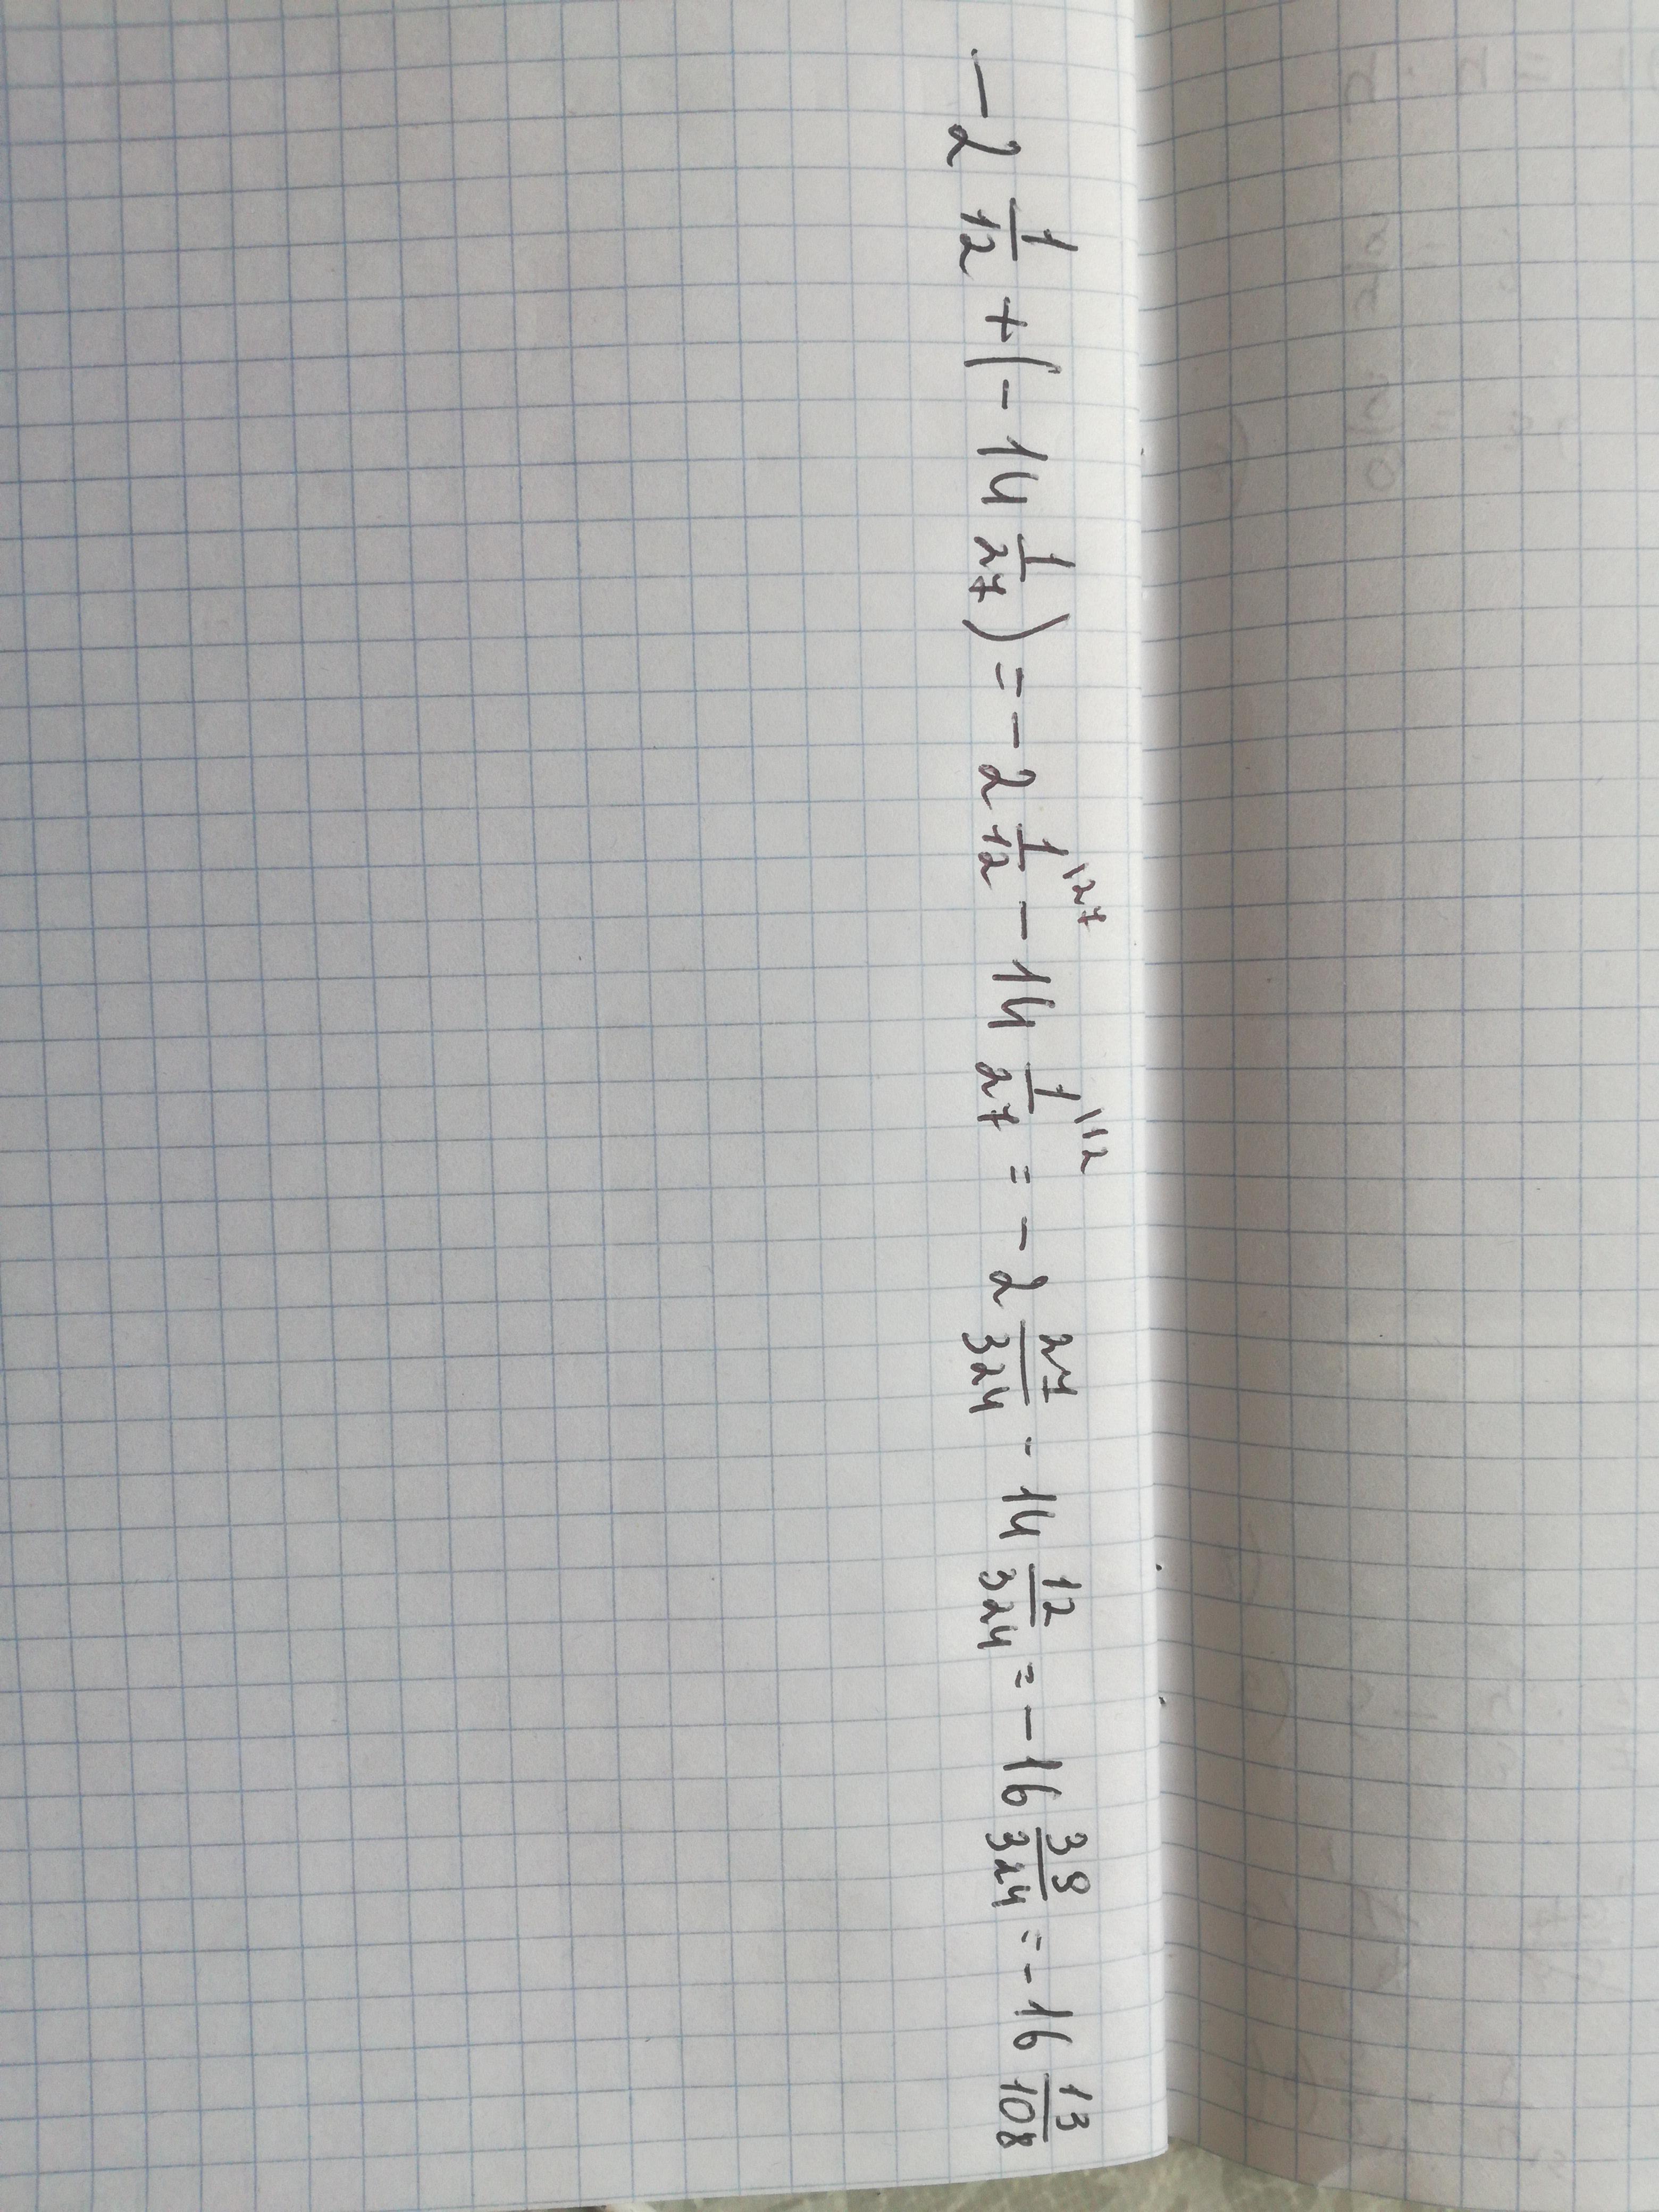 -2 1/12 + (-14 1/27) = -2 1/12 \27 - 14 1/27 \12 = -2 27/324 - 14 12/324 = -16 39/324 = -16 13/108